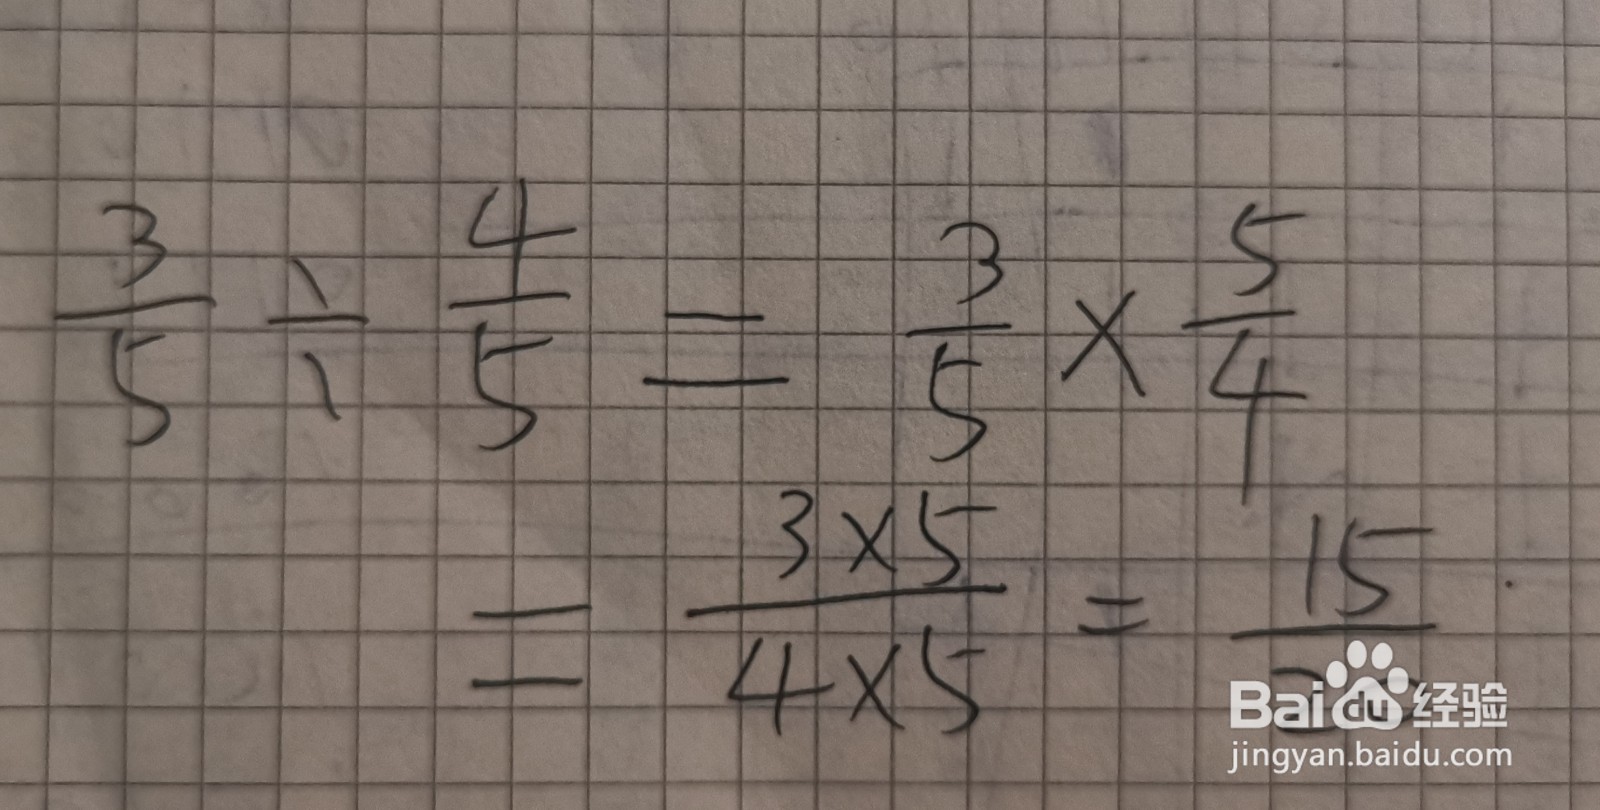 3/5 ÷ 4/5 = 3/5 × 5/4
= 3×5/4×5 = 15/20
Baidu 经验
jingyan.baidu.com